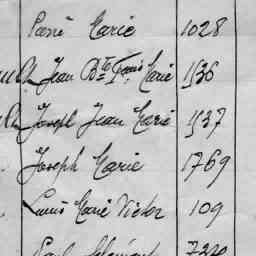 René Marie 1028
Jean Bte Frois Marie 1536
Joseph Jean Marie 1537
Joseph Marie 1769
Louis Marie Victor 109
Paul